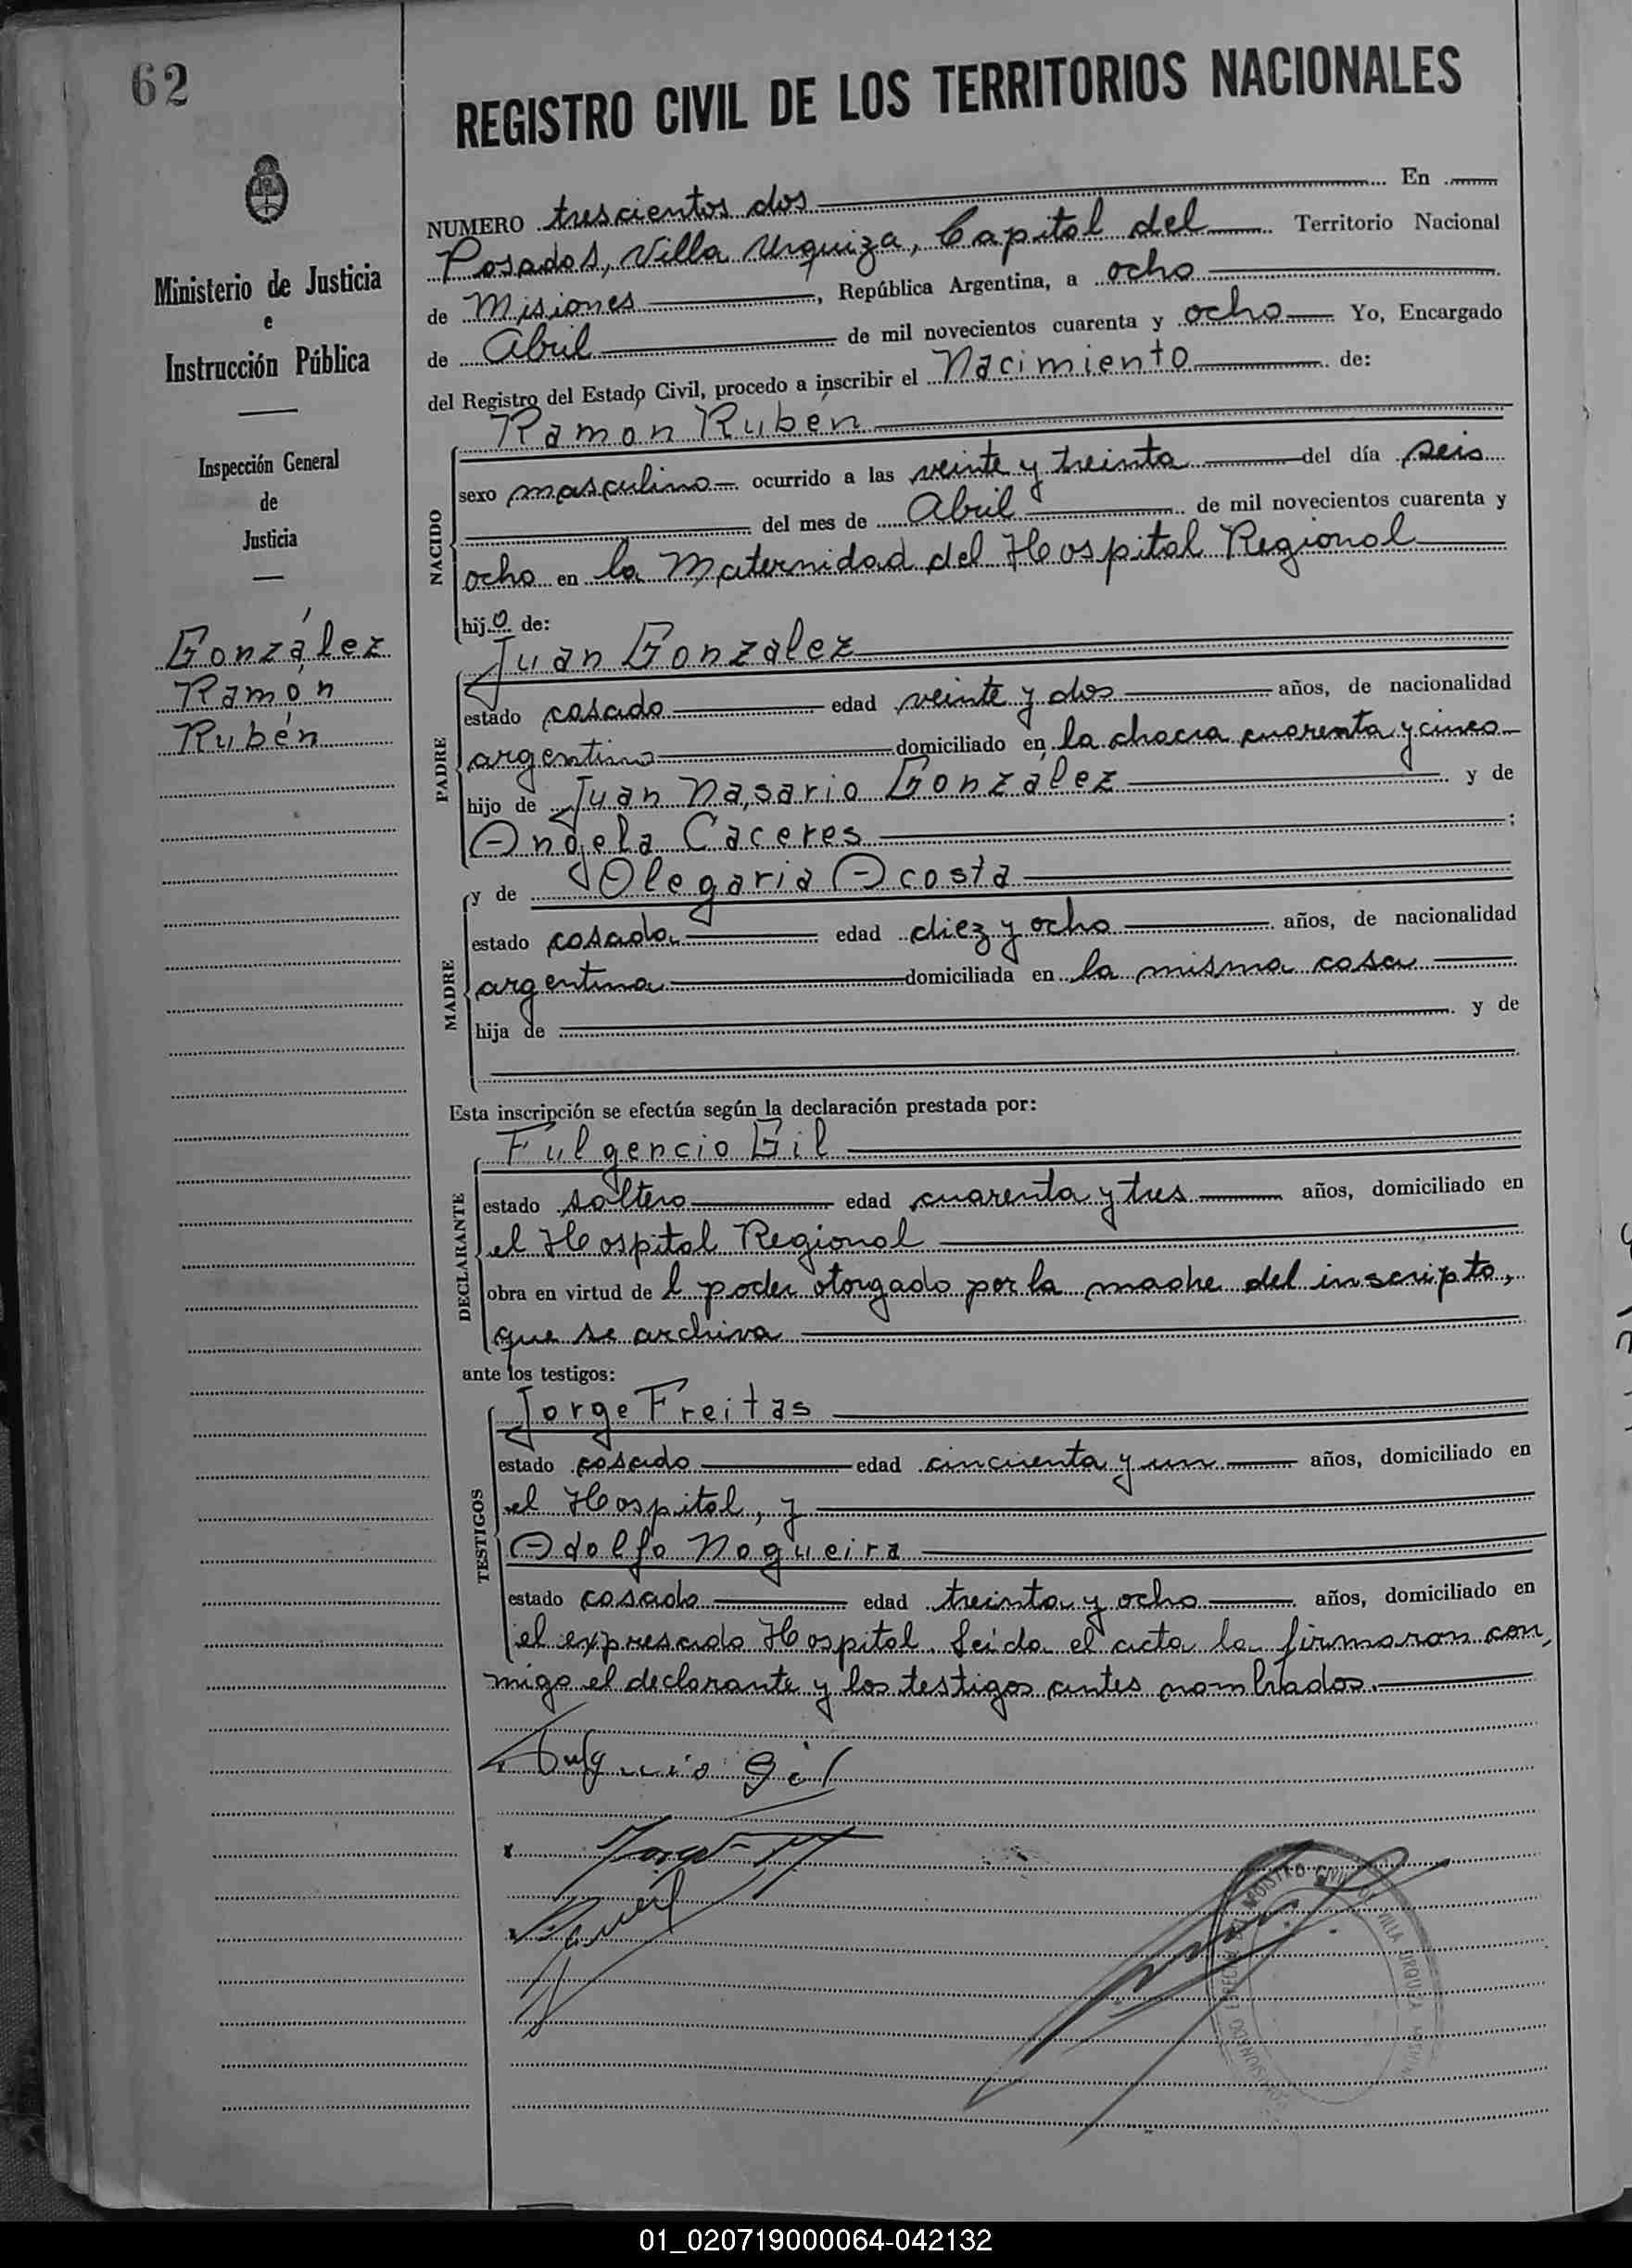 62
REGISTRO CIVIL DE LOS TERRITORIOS NACIONALES
Ministerio de Justicia
e
Instrucción Pública
Inspección General
de
Justicia
González
Ramón
Rubén
NUMERO trescientos dos En
Posadas, Villa Urquiza, Capital del Territorio Nacional
de Misiones, República Argentina, a ocho
de Abril de mil novecientos cuarenta y ocho Yo, Encargado
del Registro del Estado Civil, procedo a inscribir el Nacimiento de:
Ramón Rubén
NACIDO
sexo masculino ocurrido a las veinte y treinta del día seis
del mes de Abril de mil novecientos cuarenta y
ocho en la Maternidad del Hospital Regional
hijo de:
Juan González
PADRE
estado casado edad veinte y dos años, de nacionalidad
argentino domiciliado en la chacra cuarenta y cinco
hijo de Juan Nasario González y de
Angela Caceres;
y de Olegaria Acosta
MADRE
estado casada edad diez y ocho años, de nacionalidad
argentina domiciliada en la misma casa
hija de y de
Esta inscripción se efectúa según la declaración prestada por:
Fulgencio Gil
DECLARANTE
estado soltero edad cuarenta y tres años, domiciliado en
el Hospital Regional
obra en virtud del poder otorgado por la madre del inscripto,
que se archiva
ante los testigos:
Jorge Freitas
TESTIGOS
estado casado edad cincuenta y un años, domiciliado en
el Hospital, y
Adolfo Nogueira
estado casado edad treinta y ocho años, domiciliado en
el expresado Hospital. Leida el acta la firmaron con,
migo el declarante y los testigos antes nombrados.
Fulgencio Gil
REGISTRO CIVIL DE VILLA URQUIZA
01_020719000064-042132